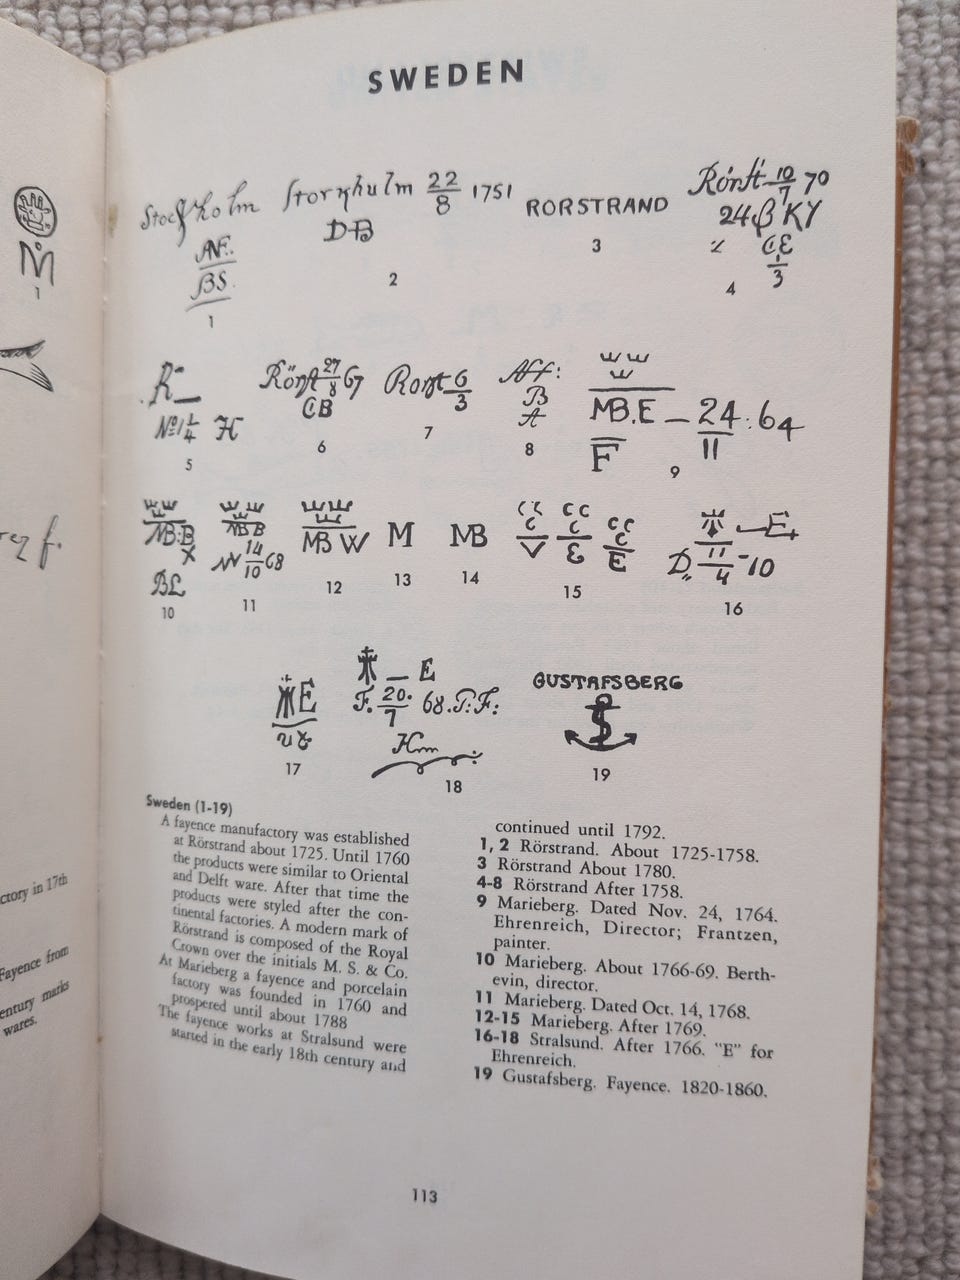 SWEDEN
Stockholm
BS.
1
Storkhulm 22/8 1751
DB
2
RORSTRAND
3
Rönst 10/7 70
24 B KY
CE
3
4
R
No 1 1/4 H
5
Rönst 27/8 67
CB
6
Rorst 6/3
7
Aff:
B
A
8
MB.E _ 24 : 64
F 11
9
MB:B
X
10
MBB
14/10 68
11
MB W
12
M
13
MB
14
CC CC CC
C C C
V E E
15
E
D,, 11/4 -10
16
E
17
_ E
F. 20./7 68. P.F:
18
GUSTAFSBERG
19
Sweden (1-19)
A fayence manufactory was established
at Rörstrand about 1725. Until 1760
the products were similar to Oriental
and Delft ware. After that time the
products were styled after the con-
tinental factories. A modern mark of
Rörstrand is composed of the Royal
Crown over the initials M. S. & Co.
At Marieberg a fayence and porcelain
factory was founded in 1760 and
prospered until about 1788
The fayence works at Stralsund were
started in the early 18th century and
continued until 1792.
1, 2 Rörstrand. About 1725-1758.
3 Rörstrand About 1780.
4-8 Rörstrand After 1758.
9 Marieberg. Dated Nov. 24, 1764.
Ehrenreich, Director; Frantzen,
painter.
10 Marieberg. About 1766-69. Berth-
evin, director.
11 Marieberg. Dated Oct. 14, 1768.
12-15 Marieberg. After 1769.
16-18 Stralsund. After 1766. "E" for
Ehrenreich.
19 Gustafsberg. Fayence. 1820-1860.
113
M
1
f.
ctory in 17th
Fayence from
entury marks
wares.